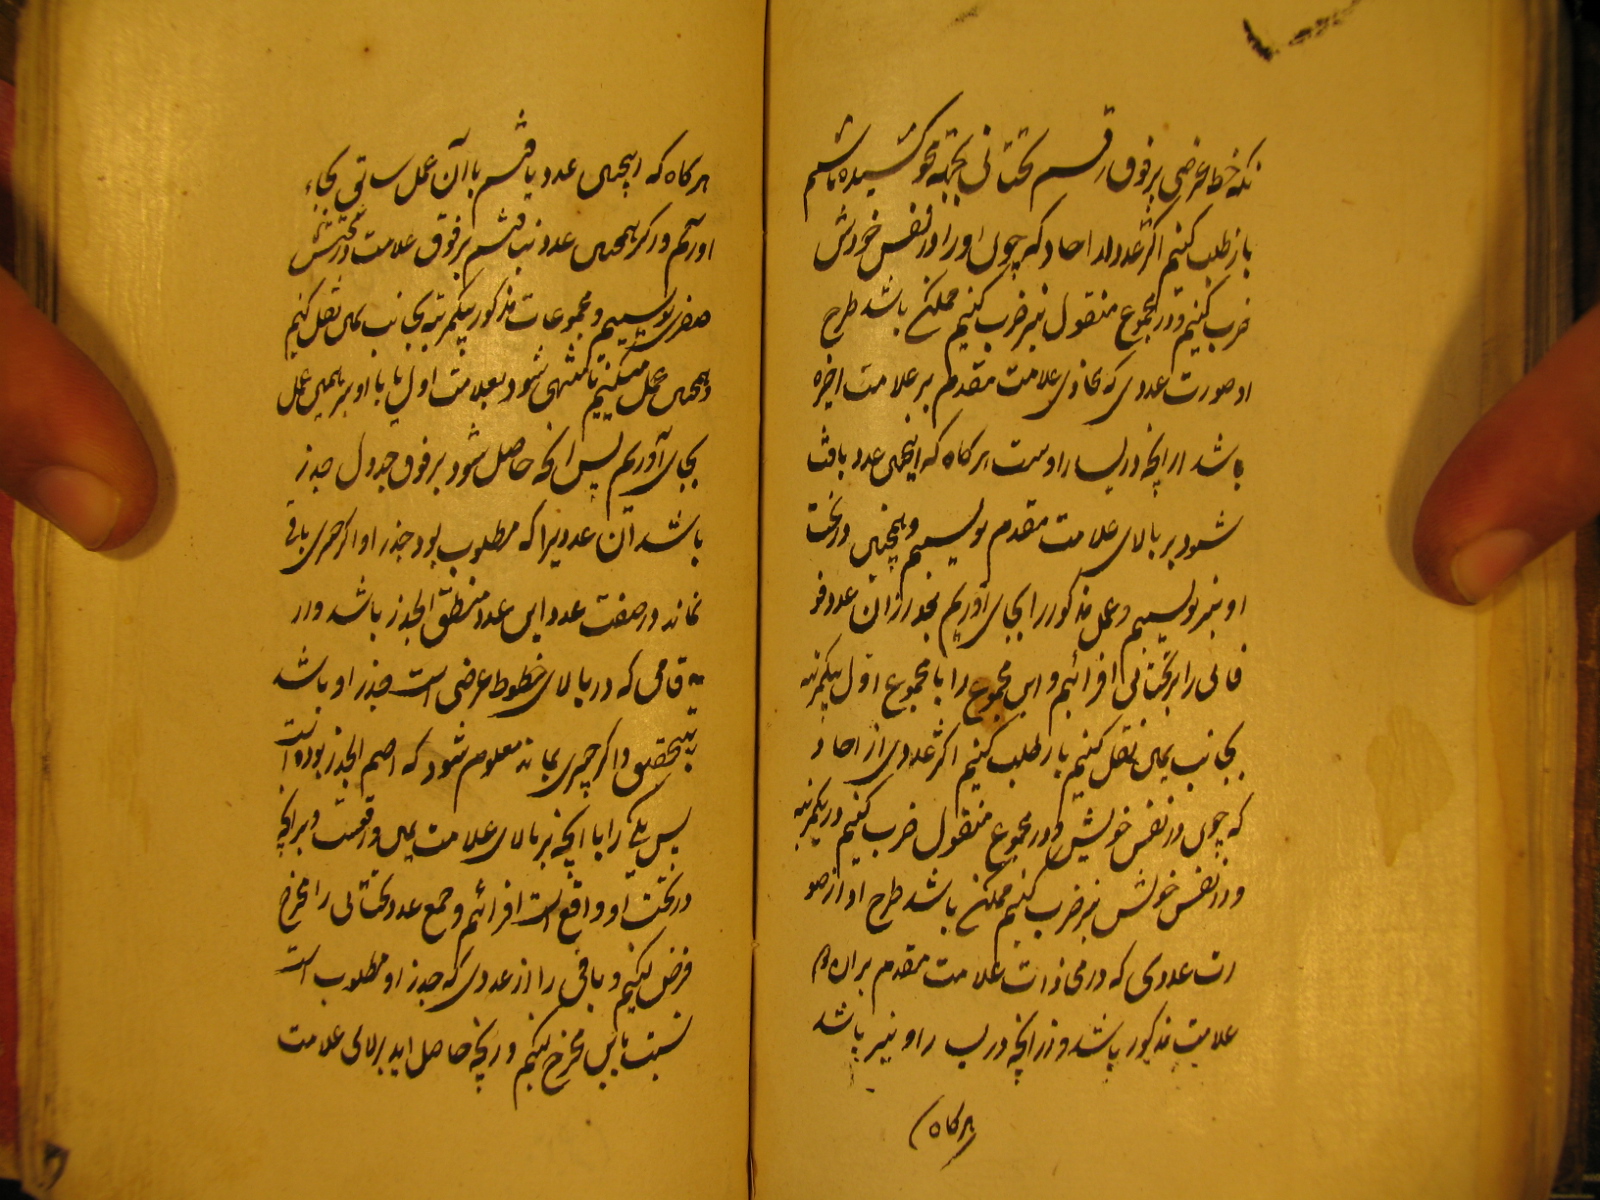 نکه خط عرضی بر فوق رقم تحتانی بجهة محو کشیده باشیم
باز طلب کنیم اکثر عدد از احاد که چون او را در نفس خودش
ضرب کنیم و در مجموع منقول نیز ضرب کنیم ممکن باشد طرح
او صورت عددی که محاذی علامت مقدم بر علامت اخیره
باشد از انچه در یسار اوست هرکاه که اینچنین عدد یافت
شود بر بالای علامت مقدم نویسیم و همچنین در تحت
او نیز نویسیم و عمل مذکور را بجای آوریم بعد ازان عدد فو
قانی را بر تحتانی افزائیم و این مجموع را با مجموع اول بیکمرتبه
بجانب یمین نقل کنیم باز طلب کنیم اکثر عددی از احاد
که چون در نفس خویش و در مجموع منقول ضرب کنیم در یکمرتبه
و در نفس خویش نیز ضرب کنیم ممکن باشد طرح او از صو
رت عددی که در محاذات علامت مقدم بران
علامت مذکور باشد و از انچه در یسار او نیز باشد
هرکاه
هرکاه که اینچنین عدد یافتیم باآن عمل سابق بجای
اوریم و اکر همچنین عدد نیافتیم بر فوق علامت و در تحتش
صفری نویسیم و مجموعات مذکور بیکمرتبه بجانب یمین نقل کنیم
و همچنین عمل میکنیم تا منتهی شود بعلامت اول یا با او نیز همین عمل
بجای آوریم پس انچه حاصل شود بر فوق جدول جذر
باشد آن عددیرا که مطلوب بود جذر او اکر چیزی باقی
نماند در صفت عدد این عدد منطق الجذر باشد و ار
قامی که در بالای خطوط عرضی است جذر او باشد
بتحقیق و اکر چیزی بماند معلوم شود که اصم الجذر بوده است
پس یکی را با انچه بر بالای علامت یمین واقعست و بر انچه
در تحت او واقع است افزائیم و جمع عدد تحتانی را مخرج
فرض کنیم و باقی را از عددی که جذر او مطلوب است
نسبت باین مخرج کنیم و انچه حاصل اید بر بالای علامت